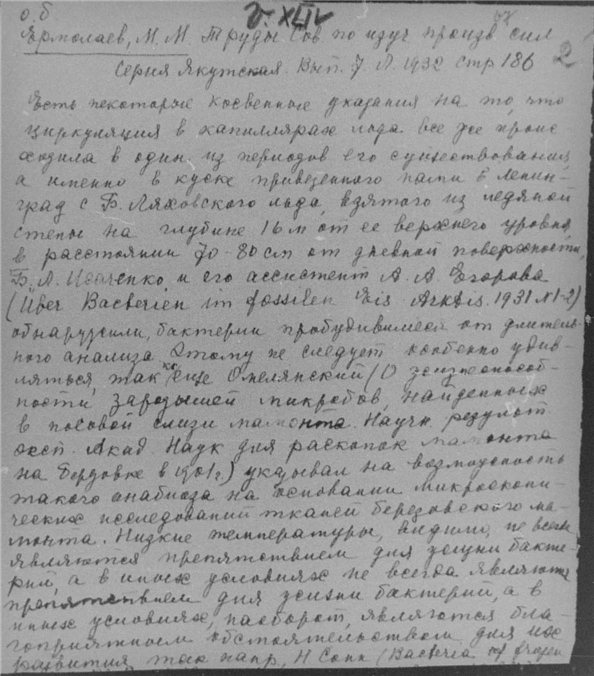 о. б
Ермолаев, М. М. Труды Сов по изуч произв сил 2
Серия Якутская. Вып. 7 Л. 1932 стр 186
Есть некоторые косвенные указания на то, что
циркуляция в капиллярах льда все же проис
ходила в один из периодов его существования,
а именно в куске привезенного нами в Ленин-
град с Б. Ляховского льда, взятого из ледяной
стены на глубине 16 м от ее верхнего уровня,
в расстоянии 70-80 см от дневной поверхности,
Б. Л. Исаченко, и его ассистент А. А Егорова
(Uber Bacterien im fossilen Eis Arktis. 1931 № 1-2)
обнаружили, бактерии пробудившиеся от длитель-
ного анализа Этому не следует особенно удив-
ляться, так ко еще Омелянский (О жизнеспособ-
ности зародышей микробов, найденных
в носовой слизи мамонта. Научн. результ
эксп. Акад. Наук для раскопок мамонта
на Бердовке в 1901 г.) указывал на возможность
такого анабиоза на основании микроскопи-
ческих исследований тканей березовского ма-
монта. Низкие температуры, видимо, не всегда
являются препятствием для жизни бакте-
рий, а в иных условиях не всегда являются
препятствием для жизни бактерий, а в
иных условиях, наоборот, являются бла-
гоприятным обстоятельством для их
развития, так напр, Н Conn (Bacteria of frozen